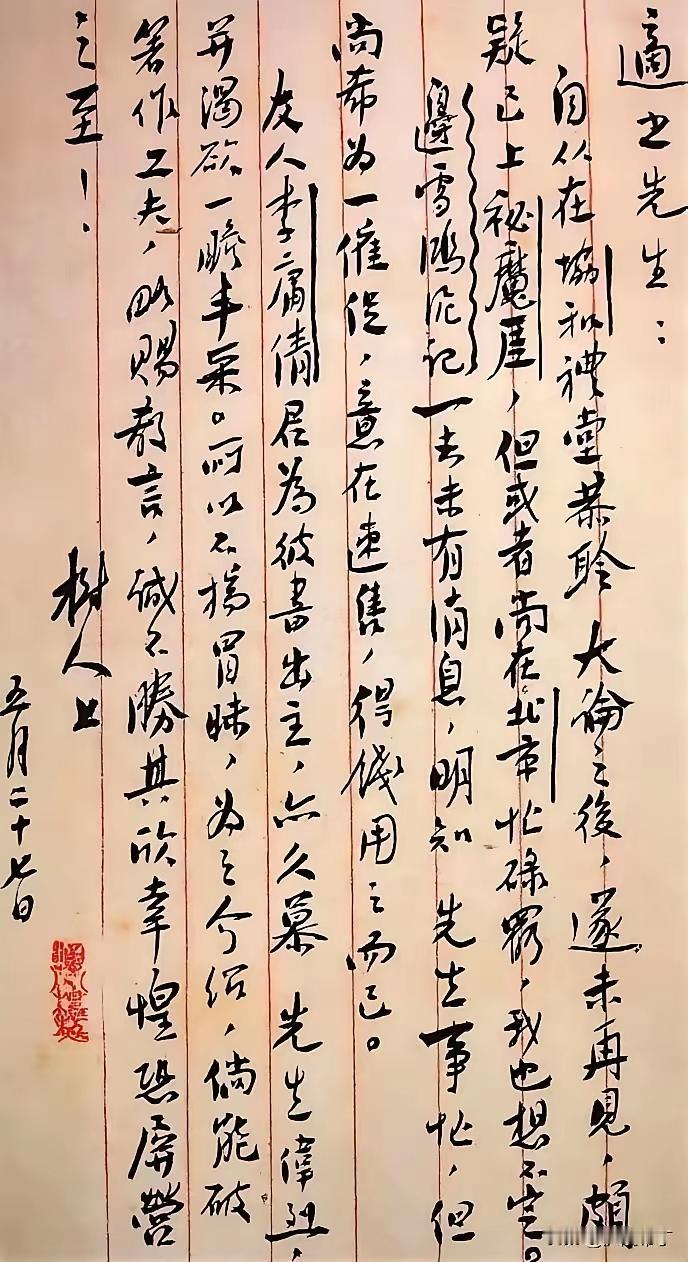 適之先生：
自从在協和禮堂恭聆大論之後，遂未再見，頗
疑已上祕魔崖，但或者尚在北京忙碌罷，我也想不定。
邊雪鴻泥記一去未有消息，明知 先生事忙，但
尚希为一催促，意在速售，得錢用之而已。
友人李庸倩君為彼書出主，亦久慕 先生偉烈，
并渴欲一瞻丰采。所以不揣冒昧，为之介绍，倘能破
著作工夫，略賜教言，誠不勝其欣幸惶恐屏營
之至！
樹人上
五月二十七日